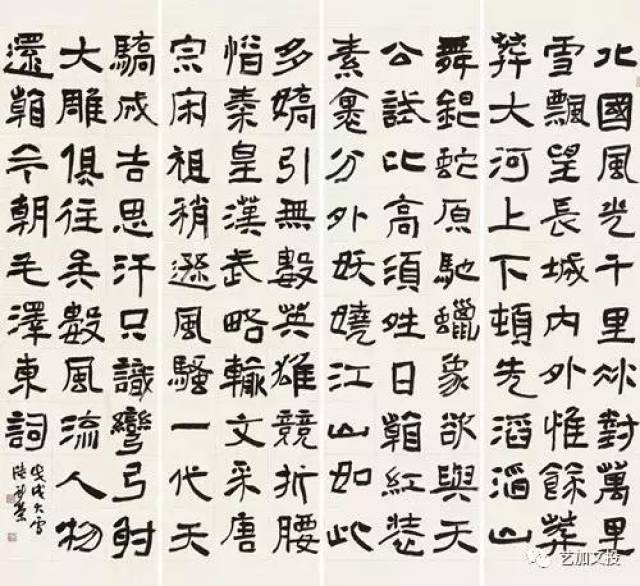 北國風光千里冰封萬里
雪飄望長城內外惟餘莽
莽大河上下頓失滔滔山
舞銀蛇原馳蠟象欲與天
公試比高須姓日看紅裝
素裹分外妖嬈江山如此
多嬌引無數英雄競折腰
惜秦皇漢武略輸文采唐
宗宋祖稍遜風騷一代天
驕成吉思汗只識彎弓射
大雕俱往矣數風流人物
還看今朝毛澤東詞
戊戌大雪
艺加文投